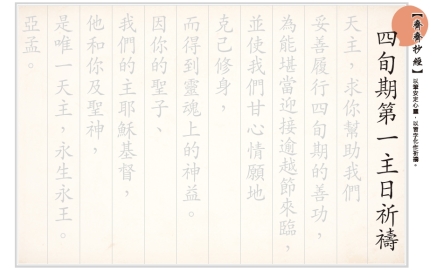 【齋齋抄經】
以筆安定心靈，以習字化作祈禱。
四旬期第一主日祈禱
天主，求你幫助我們
妥善履行四旬期的善功，
為能堪當迎接逾越節來臨，
並使我們甘心情願地
克己修身，
而得到靈魂上的神益。
因你的聖子、
我們的主耶穌基督，
他和你及聖神，
是唯一天主，永生永王。
亞孟。